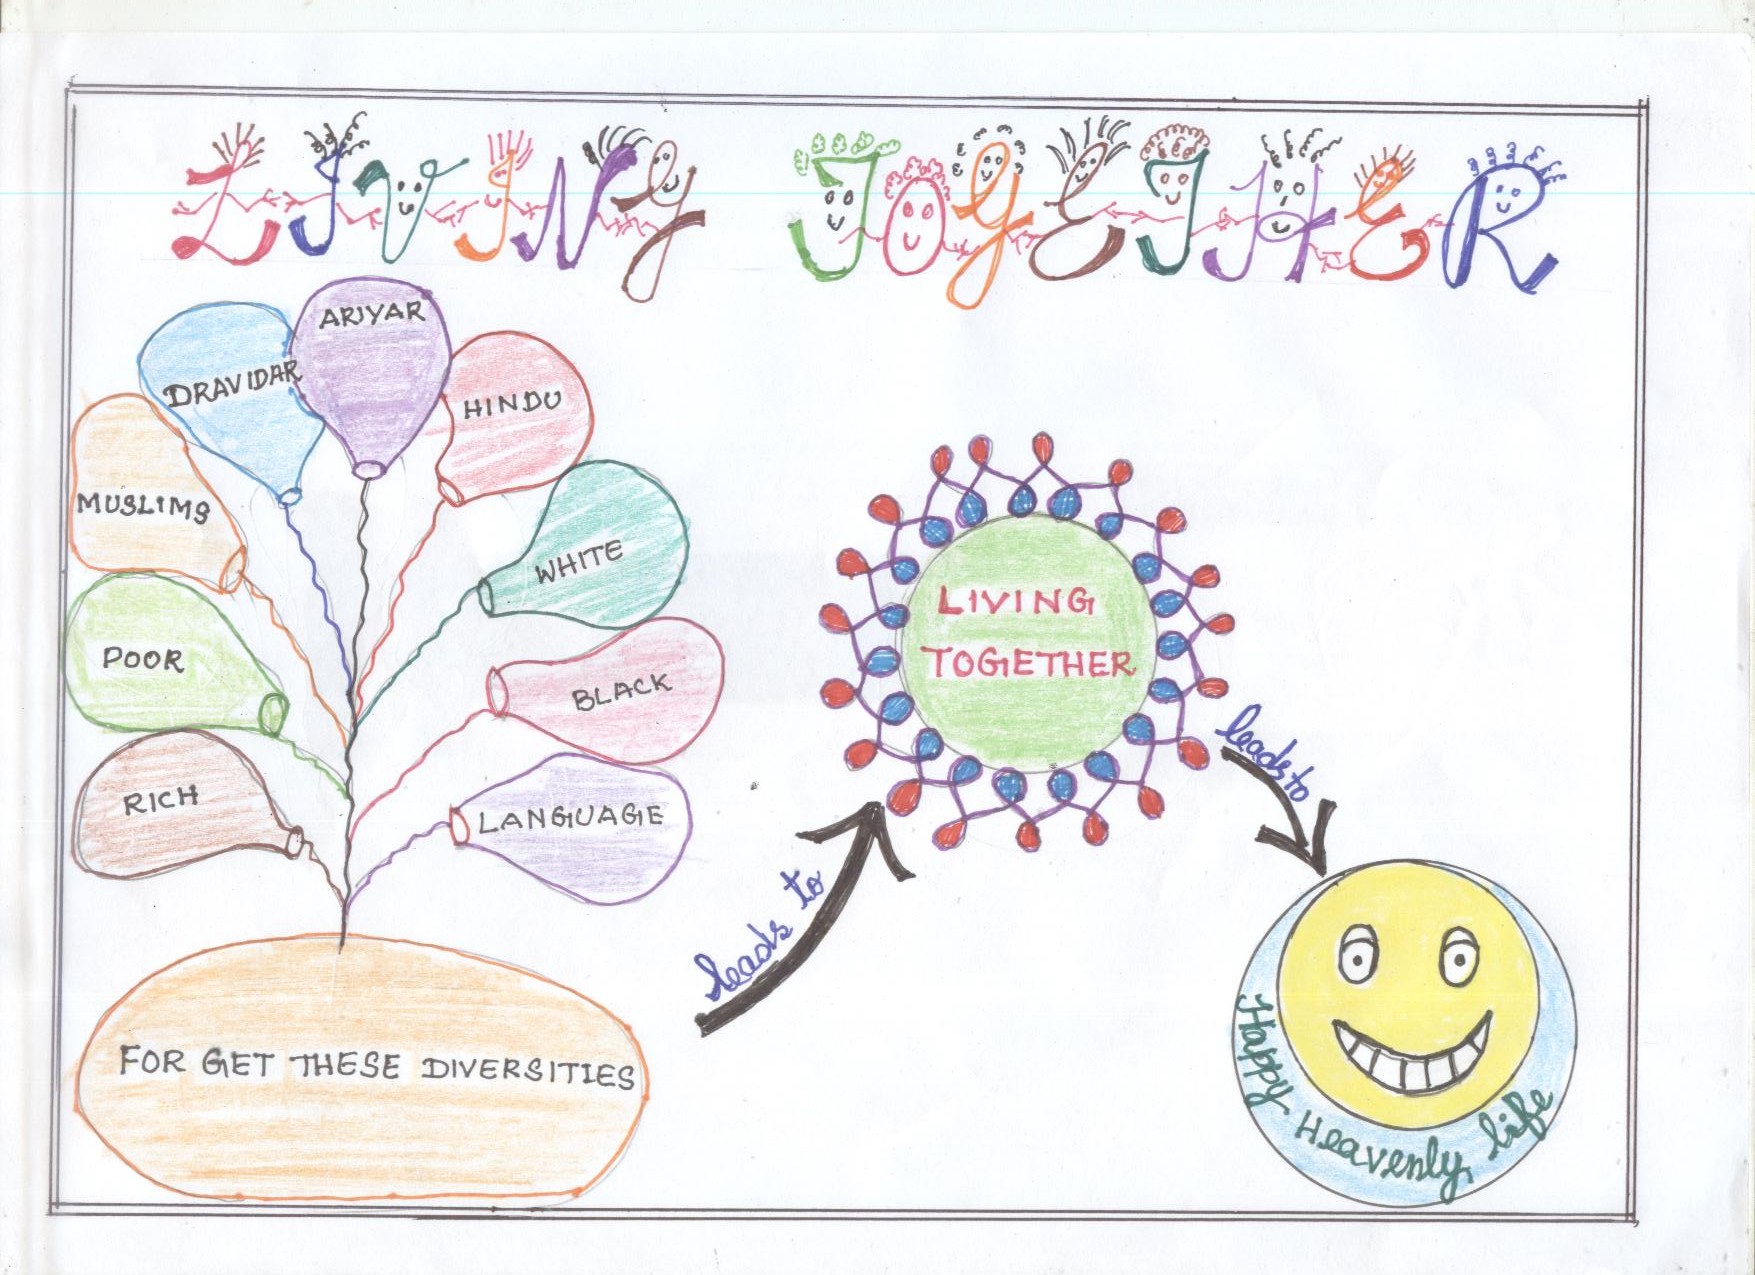 LIVING TOGETHER
ARIYAR
DRAVIDAR
HINDU
MUSLIMS
WHITE
POOR
BLACK
RICH
LANGUAGE
FOR GET THESE DIVERSITIES
leads to
LIVING
TOGETHER
leads to
Happy Heavenly life